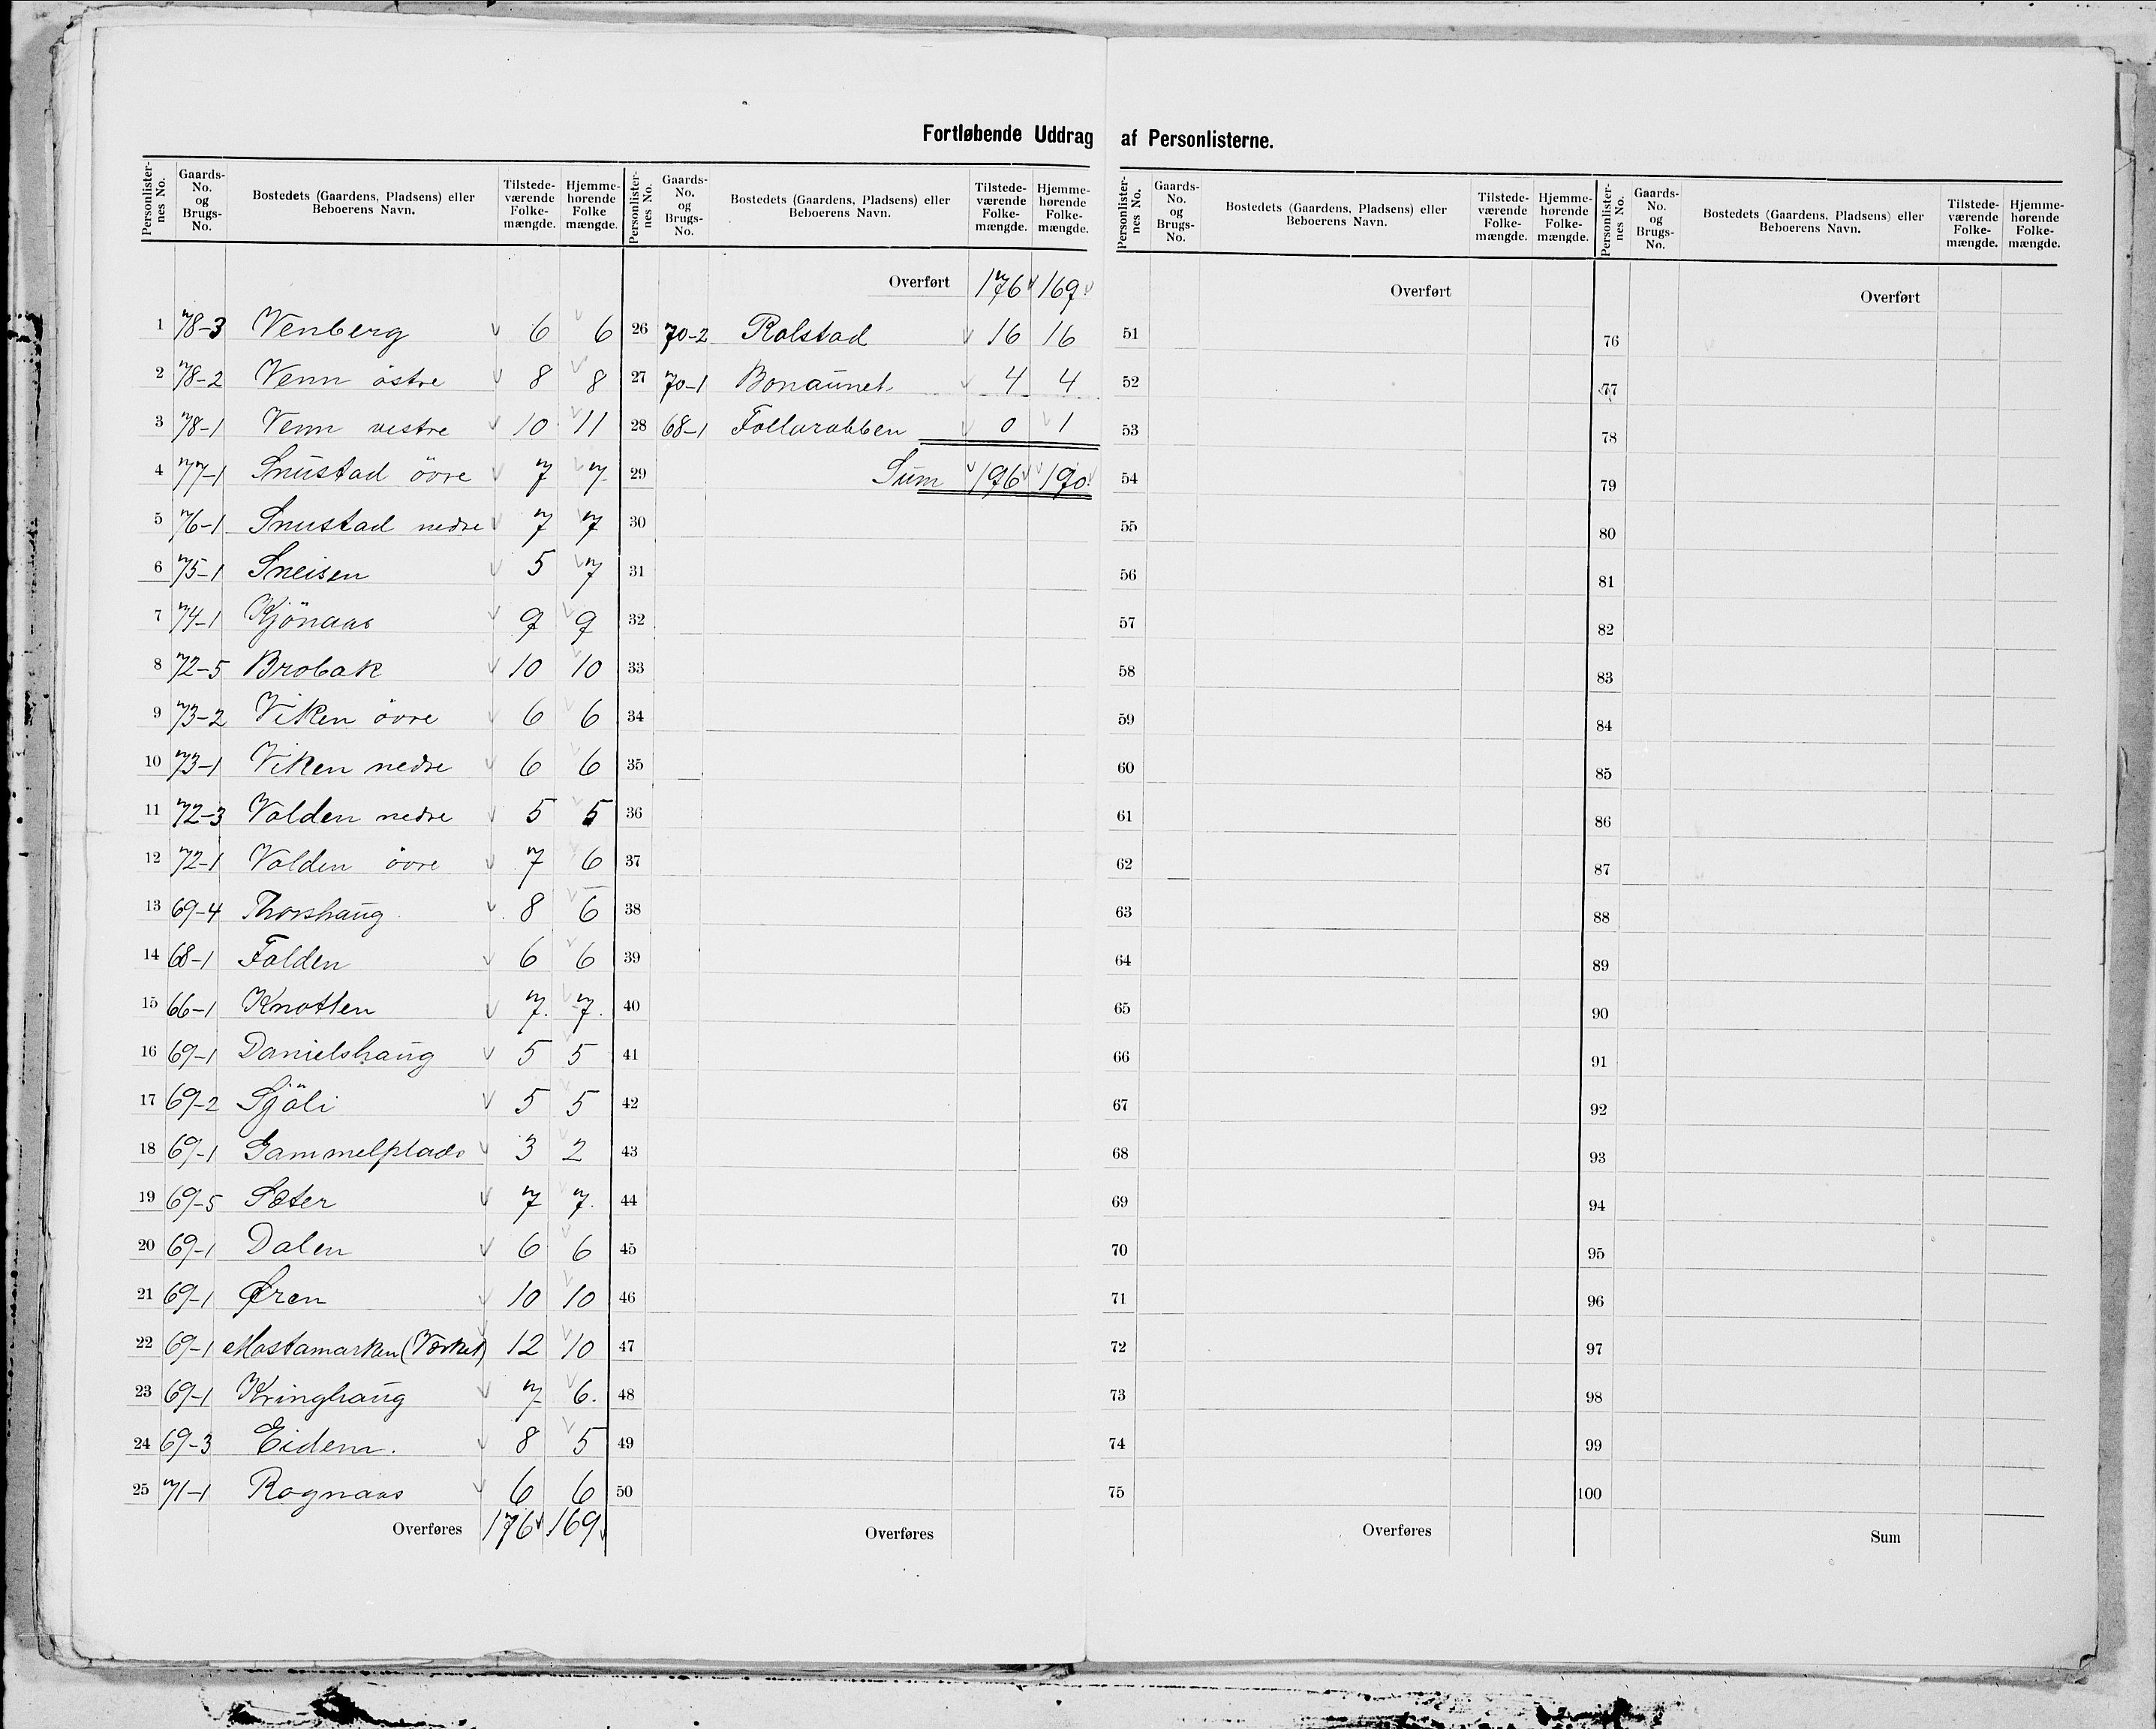 Fortløbende Uddrag af Personlisterne.
Personlisternes No. Gaards-No. og Brugs-No. Bostedets (Gaardens, Pladsens) eller Beboerens Navn. Tilstedeværende Folkemængde. Hjemmehørende Folkemængde.
1 78-3 Venberg 6 6
2 78-2 Venn östre 8 8
3 78-1 Venn vestre 10 11
4 77-1 Snustad övre 7 7
5 76-1 Snustad nedre 7 7
6 75-1 Sneisen 5 7
7 74-1 Kjönaas 9 9
8 72-5 Brobak 10 10
9 73-2 Viken övre 6 6
10 73-1 Viken nedre 6 6
11 72-3 Volden nedre 5 5
12 72-1 Volden övre 7 6
13 69-4 Thorshaug 8 6
14 68-1 Folden 6 6
15 66-1 Knotten 7 7
16 69-1 Danielshaug 5 5
17 69-2 Sjöli 5 5
18 69-1 Gammelplads 3 2
19 69-5 Sæter 7 7
20 69-1 Dalen 6 6
21 69-1 Øren 10 10
22 69-1 Mostamarken (Værket) 12 10
23 69-1 Kringhaug 7 6
24 69-3 Eidem. 8 5
25 71-1 Rognaas 6 6
Overføres 176 169
Personlisternes No. Gaards-No. og Brugs-No. Bostedets (Gaardens, Pladsens) eller Beboerens Navn. Tilstedeværende Folkemængde. Hjemmehørende Folkemængde.
Overført 176 169
26 70-2 Rolstad 16 16
27 70-1 Bonaunet 4 4
28 68-1 0 1
29 Sum 196 190
30
31
32
33
34
35
36
37
38
39
40
41
42
43
44
45
46
47
48
49
50
Overføres
Personlisternes No. Gaards-No. og Brugs-No. Bostedets (Gaardens, Pladsens) eller Beboerens Navn. Tilstedeværende Folkemængde. Hjemmehørende Folkemængde.
Overført
51
52
53
54
55
56
57
58
59
60
61
62
63
64
65
66
67
68
69
70
71
72
73
74
75
Overføres
Personlisternes No. Gaards-No. og Brugs-No. Bostedets (Gaardens, Pladsens) eller Beboerens Navn. Tilstedeværende Folkemængde. Hjemmehørende Folkemængde.
Overført
76
77
78
79
80
81
82
83
84
85
86
87
88
89
90
91
92
93
94
95
96
97
98
99
100
Sum